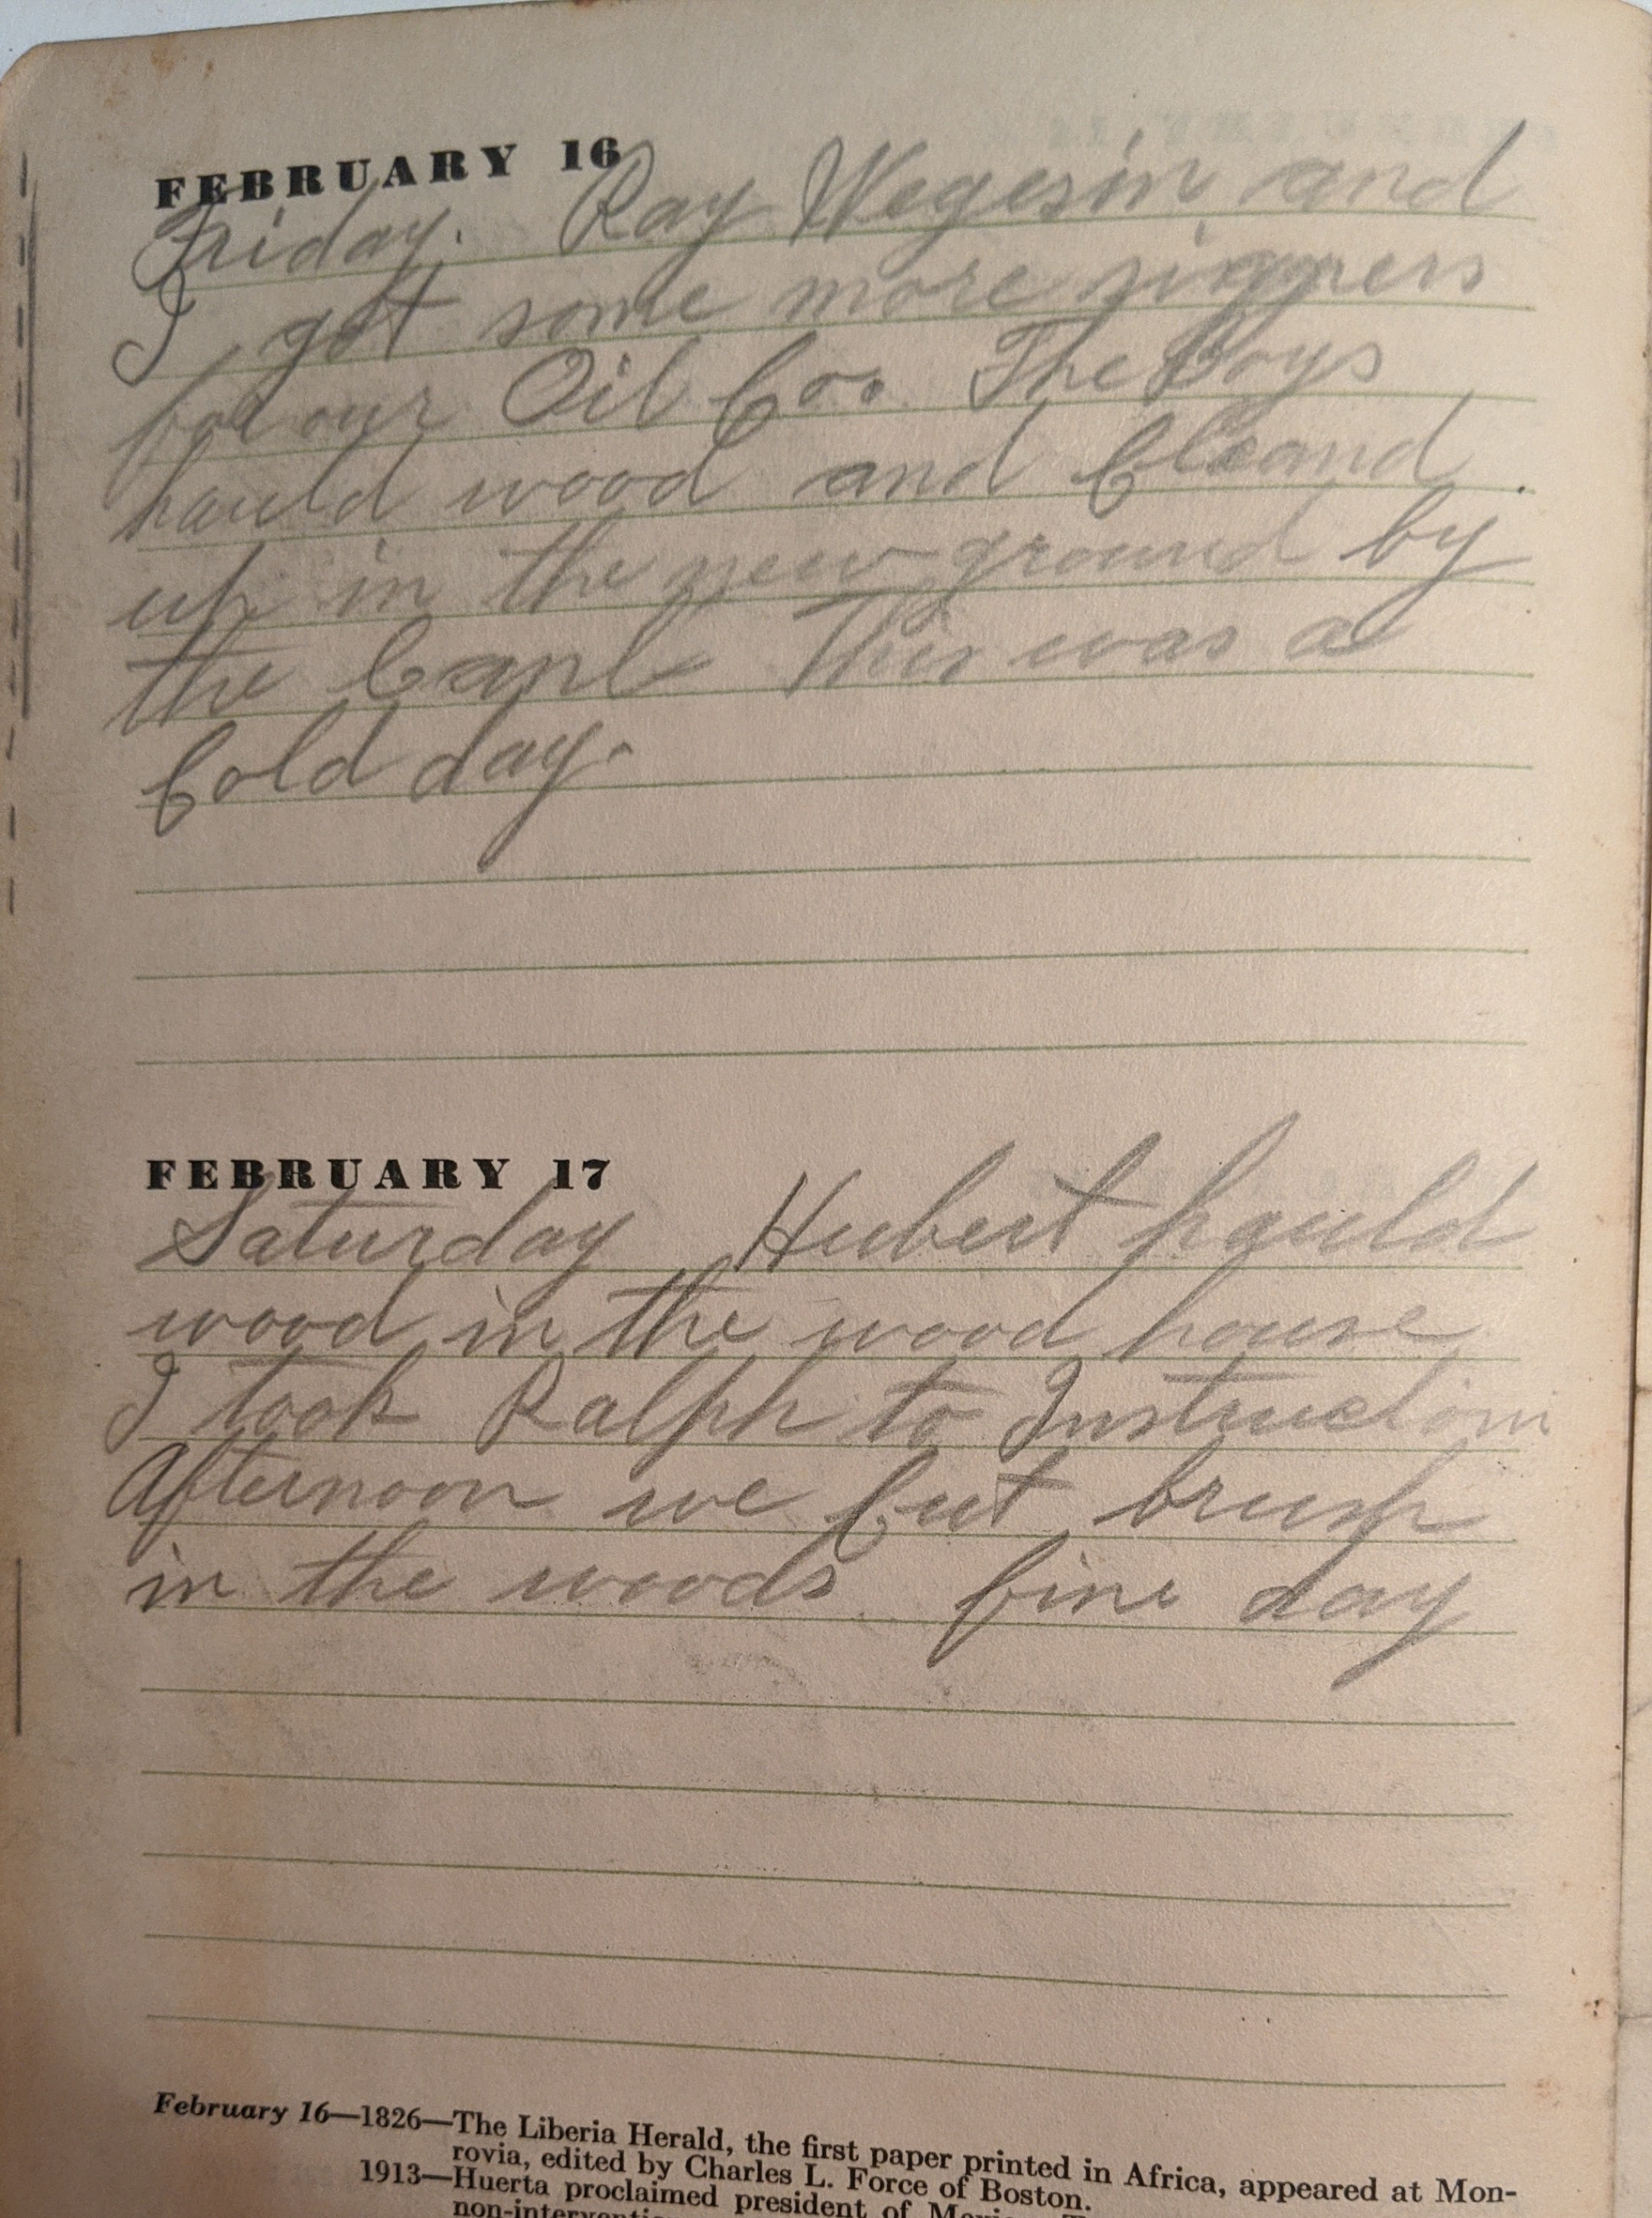 FEBRUARY 16
Friday. Ray Wegesin and
I got some more signers
for our Oil Co. The Boys
hauld wood and Cleand
up in the new ground by
the Canl This was a
Cold day.
FEBRUARY 17
Saturday Hubert hauld
wood in the wood house
I took Ralph to Instruction
Afternoon we Cut brush
in the woods fine day
February 16—1826—The Liberia Herald, the first paper printed in Africa, appeared at Mon-
rovia, edited by Charles L. Force of Boston.
1913—Huerta proclaimed president of